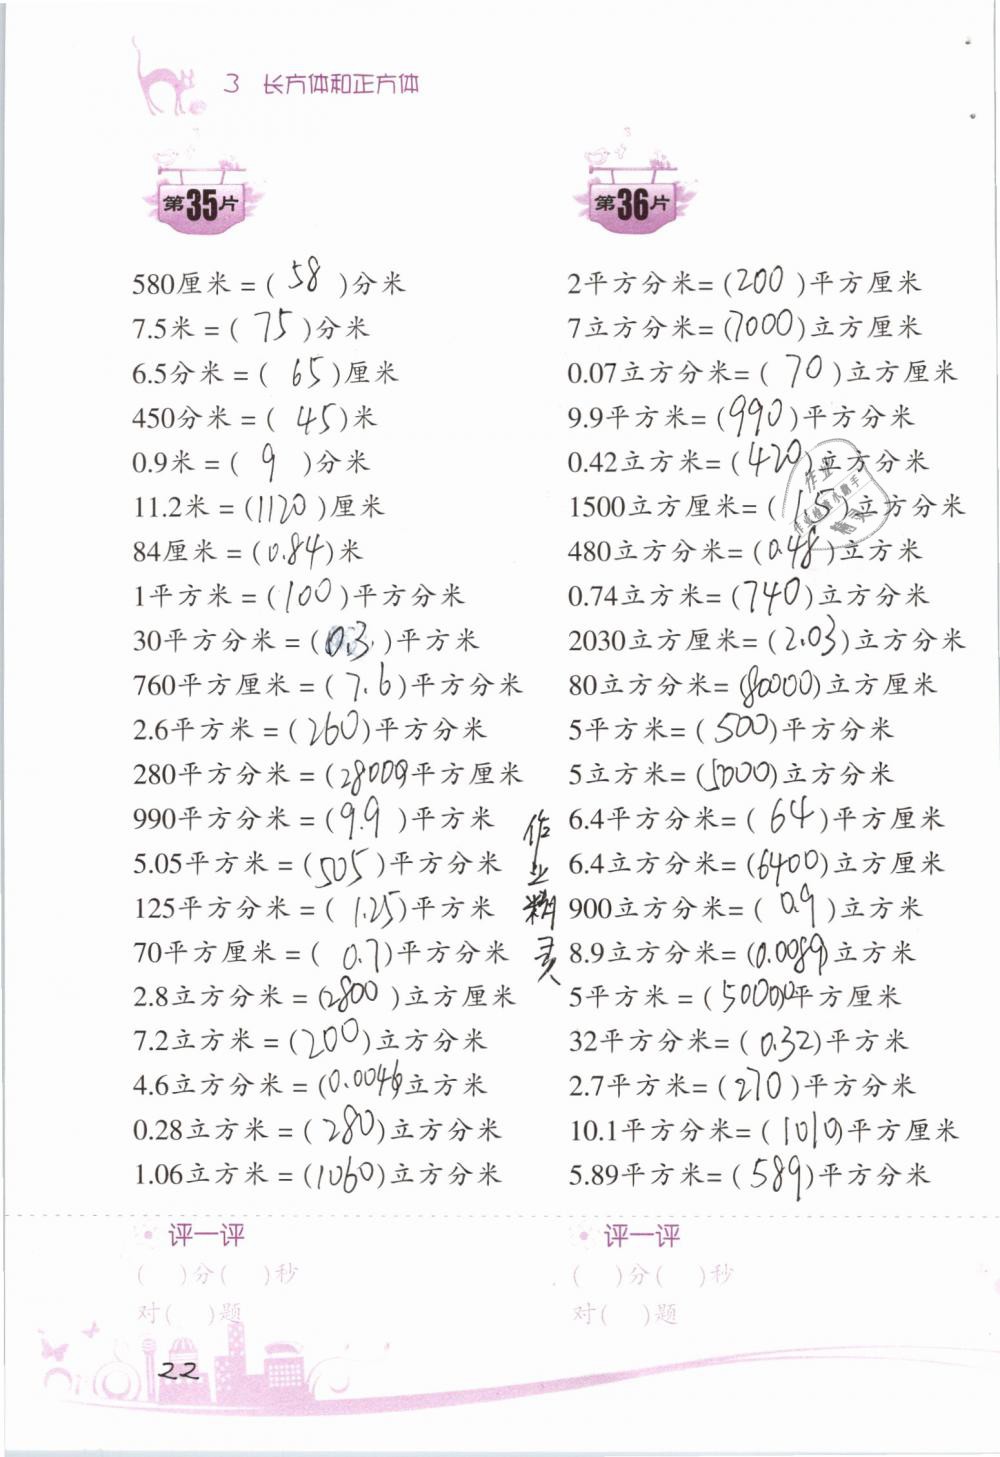 3 长方体和正方体
第35片
580厘米=(58)分米
7.5米=(75)分米
6.5分米=(65)厘米
450分米=(45)米
0.9米=(9)分米
11.2米=(1120)厘米
84厘米=(0.84)米
1平方米=(100)平方分米
30平方分米=(0.3)平方米
760平方厘米=(7.6)平方分米
2.6平方米=(260)平方分米
280平方分米=(28000)平方厘米
990平方分米=(9.9)平方米
5.05平方米=(505)平方分米
125平方分米=(1.25)平方米
70平方厘米=(0.7)平方分米
2.8立方分米=(2800)立方厘米
7.2立方米=(200)立方分米
4.6立方分米=(0.0046)立方米
0.28立方米=(280)立方分米
1.06立方米=(1060)立方分米
评一评
( )分( )秒
对( )题
第36片
2平方分米=(200)平方厘米
7立方分米=(7000)立方厘米
0.07立方分米=(70)立方厘米
9.9平方米=(990)平方分米
0.42立方米=(420)立方分米
1500立方厘米=(1.5)立方分米
480立方分米=(0.48)立方米
0.74立方米=(740)立方分米
2030立方厘米=(2.03)立方分米
80立方分米=(80000)立方厘米
5平方米=(500)平方分米
5立方米=(5000)立方分米
6.4平方分米=(64)平方厘米
6.4立方分米=(6400)立方厘米
900立方分米=(0.9)立方米
8.9立方分米=(0.0089)立方米
5平方米=(50000)平方厘米
32平方分米=(0.32)平方米
2.7平方米=(270)平方分米
10.1平方分米=(1010)平方厘米
5.89平方米=(589)平方分米
评一评
( )分( )秒
对( )题
作业精灵
22